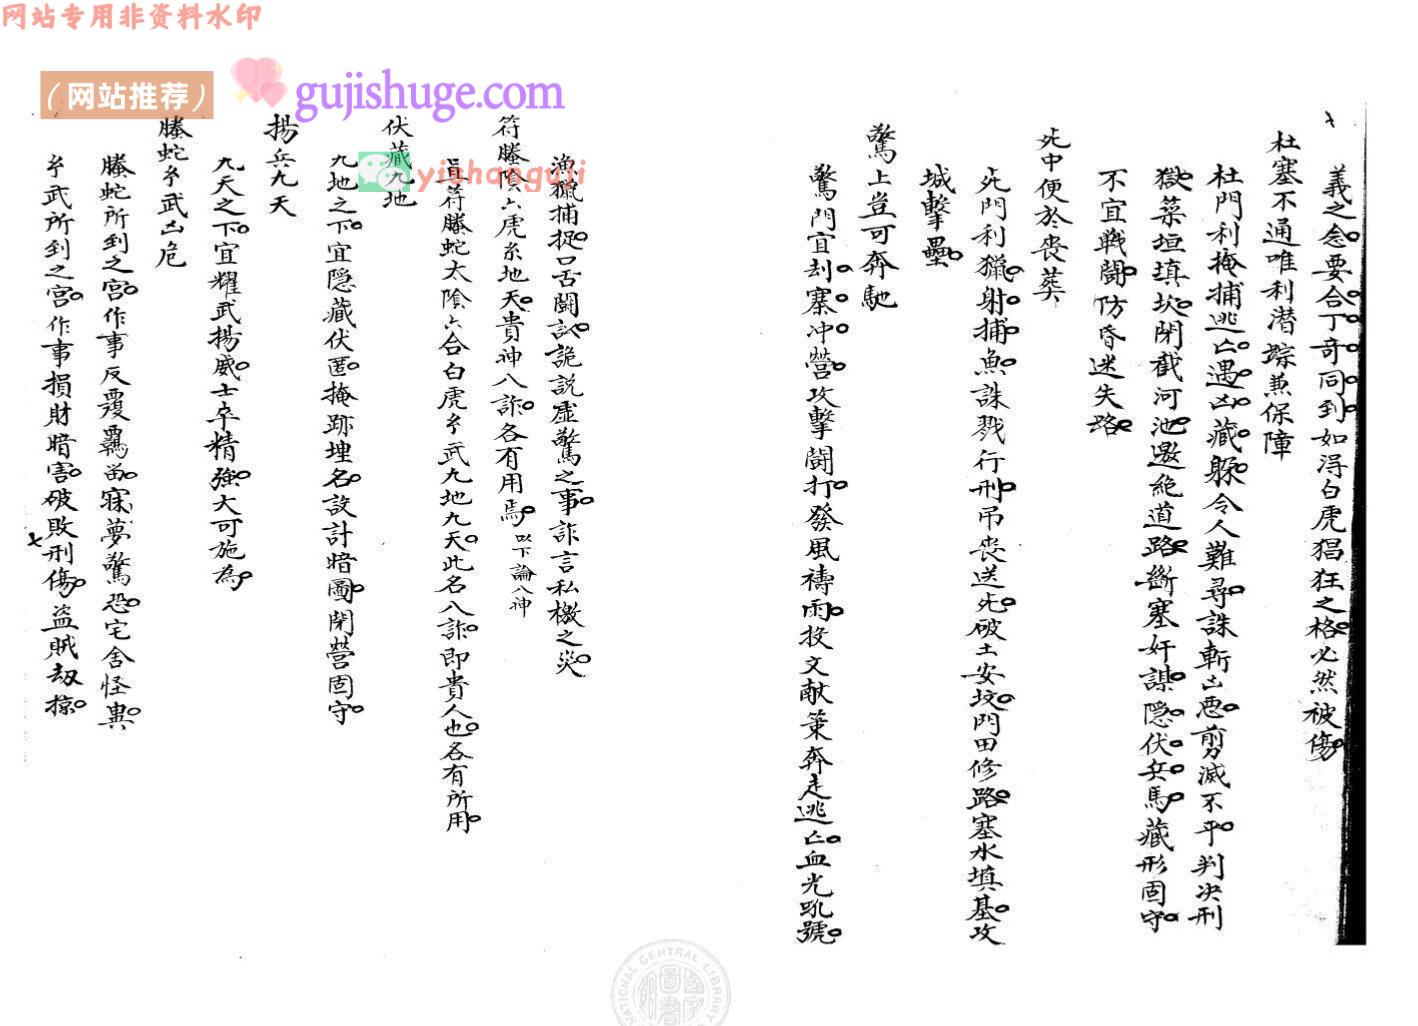 网站专用非资料水印
(网站推荐)
gujishuge.com
yishanguji
義之念要合丁奇同到如淂白虎猖狂之格必然被傷
杜塞不通唯利潜踪兼保障
杜門利掩捕逃亡遇凶藏躲令人難尋誅斬亡惡剪滅不平判决刑
獄築垣填坎閉截河池邀絶道路斷塞奸謀隐伏兵馬藏形固守
不宜戰鬪防昏迷失路
死中便於喪葬
死門利獵射捕魚誅戮行刑吊喪送死破土安坟門田修路塞水填基攻
城擊壘
驚上豈可奔馳
驚門宜刦寨冲營攻擊鬪打發風禱雨投文献策奔走逃亡血光吼號
漁獵捕捉口舌鬪訟詭説虛驚之事詐言私檄之災
符螣隂六虎玄地天貴神八詐各有用焉以下論八神
直符螣蛇太隂六合白虎玄武九地九天此名八詐即貴人也各有所用
伏藏九地
九地之下宜隐藏伏匿掩跡埋名設計暗圖閉營固守
揚兵九天
九天之下宜耀武揚威士卒精強大可施為
螣蛇玄武凶危
螣蛇所到之宮作事反覆羈留寐夢驚恐宅舍怪異
玄武所到之宮作事損財暗害破敗刑傷盜賊刼掠
七
NATIONAL CENTRAL LIBRARY
國家圖書館